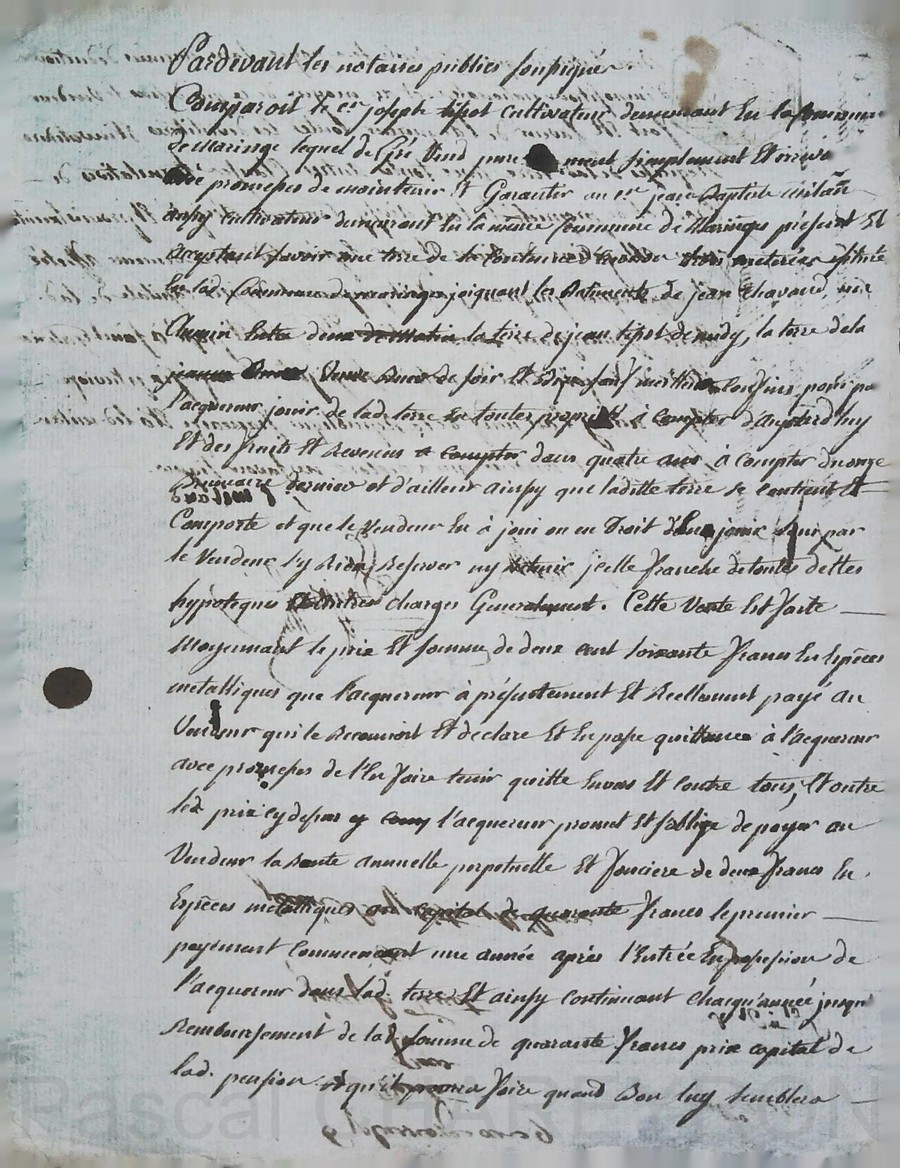 Pardevant les notaires publics soussigné
Comparoit le cen joseph tipot Cultivateur demeurant En la commune
de Maringe lequel de Gré Vend pure ment simplement Et irrevo
avec promesses de maintenir & Garantir au cen jean Baptiste
ainsy Cultivateur demeurant En la même Commune de Maringes présent Et
acceptant savoir une terre de la Contenue d'Environ trois meterées située
En lad. Commune de maringe joignant les Batiments de jean Chavand, un
Chemin Entre deux de Matin la terre de jean tipot de midy, la terre de la
Veuve de soir Et confins, pour pa
l'acquereur jouir de lad. terre En toute propriété à Compter d'aujourd'huy
Et des fruits Et Revenus à compter dans quatre ans à Compter du onze
Brumaire dernier et d'ailleur ainsy que laditte terre se Contient Et
Comporte et que le Vendeur En à joui ou eu Droit d'En jouir sans par
le Vendeur s'y Rien Reserver ny Retenir jcelle franche de toutes dettes
hypoteques charges Generalement. Cette Vente Est faite
Moyennant le prix Et somme de deux cent soixante francs En Espèces
metalliques que l'acquereur à présentement Et Reellement payé au
Vendeur qui le Reconnoit Et declare Et En passe quittance à l'acquereur
avec promesses de l'En faire tenir quitte Envers Et Contre tous, Et outre
led. prix cy dessus l'acquereur promet Et s'oblige de payer au
Vendeur la Rente annuelle perpetuelle Et fonciere de deux francs En
Espèces metalliques au Capital de quarante francs le premier
payement Commencant une année après l'Entrée En possession de
l'acquereur dans lad. terre Et ainsy Continuant chacqu'année jusqu
Remboursement de lad. somme de quarante francs prix capital de
lad. pension faire quand Bon luy Semblera
Pascal